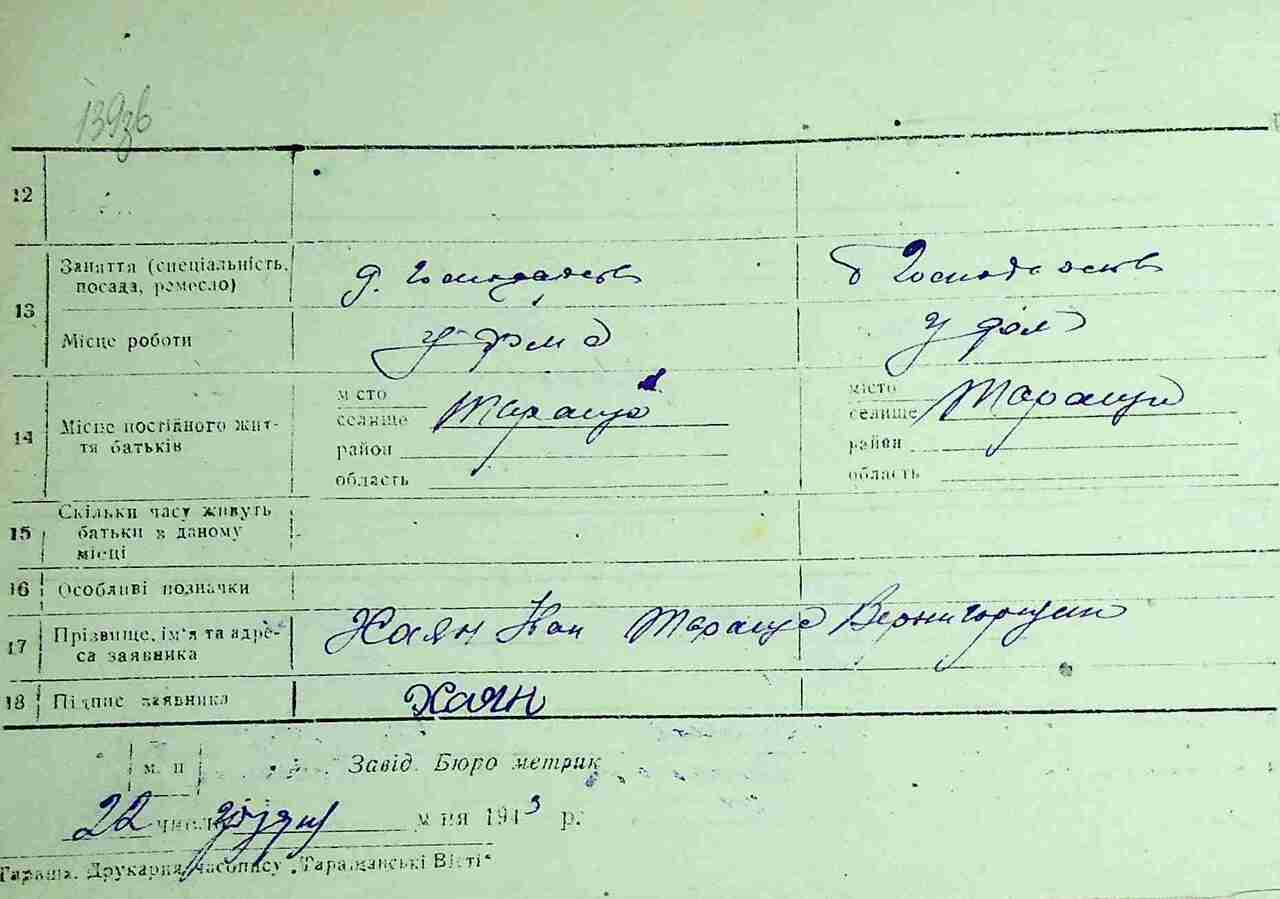 139зв
12
13 Заняття (спеціальність, посада, ремесло) д. Господарств Господарств
Місце роботи у дома у дом
14 Місце постійного життя батьків
місто місто
селище Тараща селище Тараща
район район
область область
15 Скільки часу живуть батьки в даному місці
16 Особливі позначки
17 Прізвище, ім'я та адреса заявника Хаян Тараща
18 Підпис заявника Хаян
м. п Завід. Бюро метрик
22 число грудня м-ця 1943 р.
Тараща. Друкарня часопису „Таращанські Вісті"